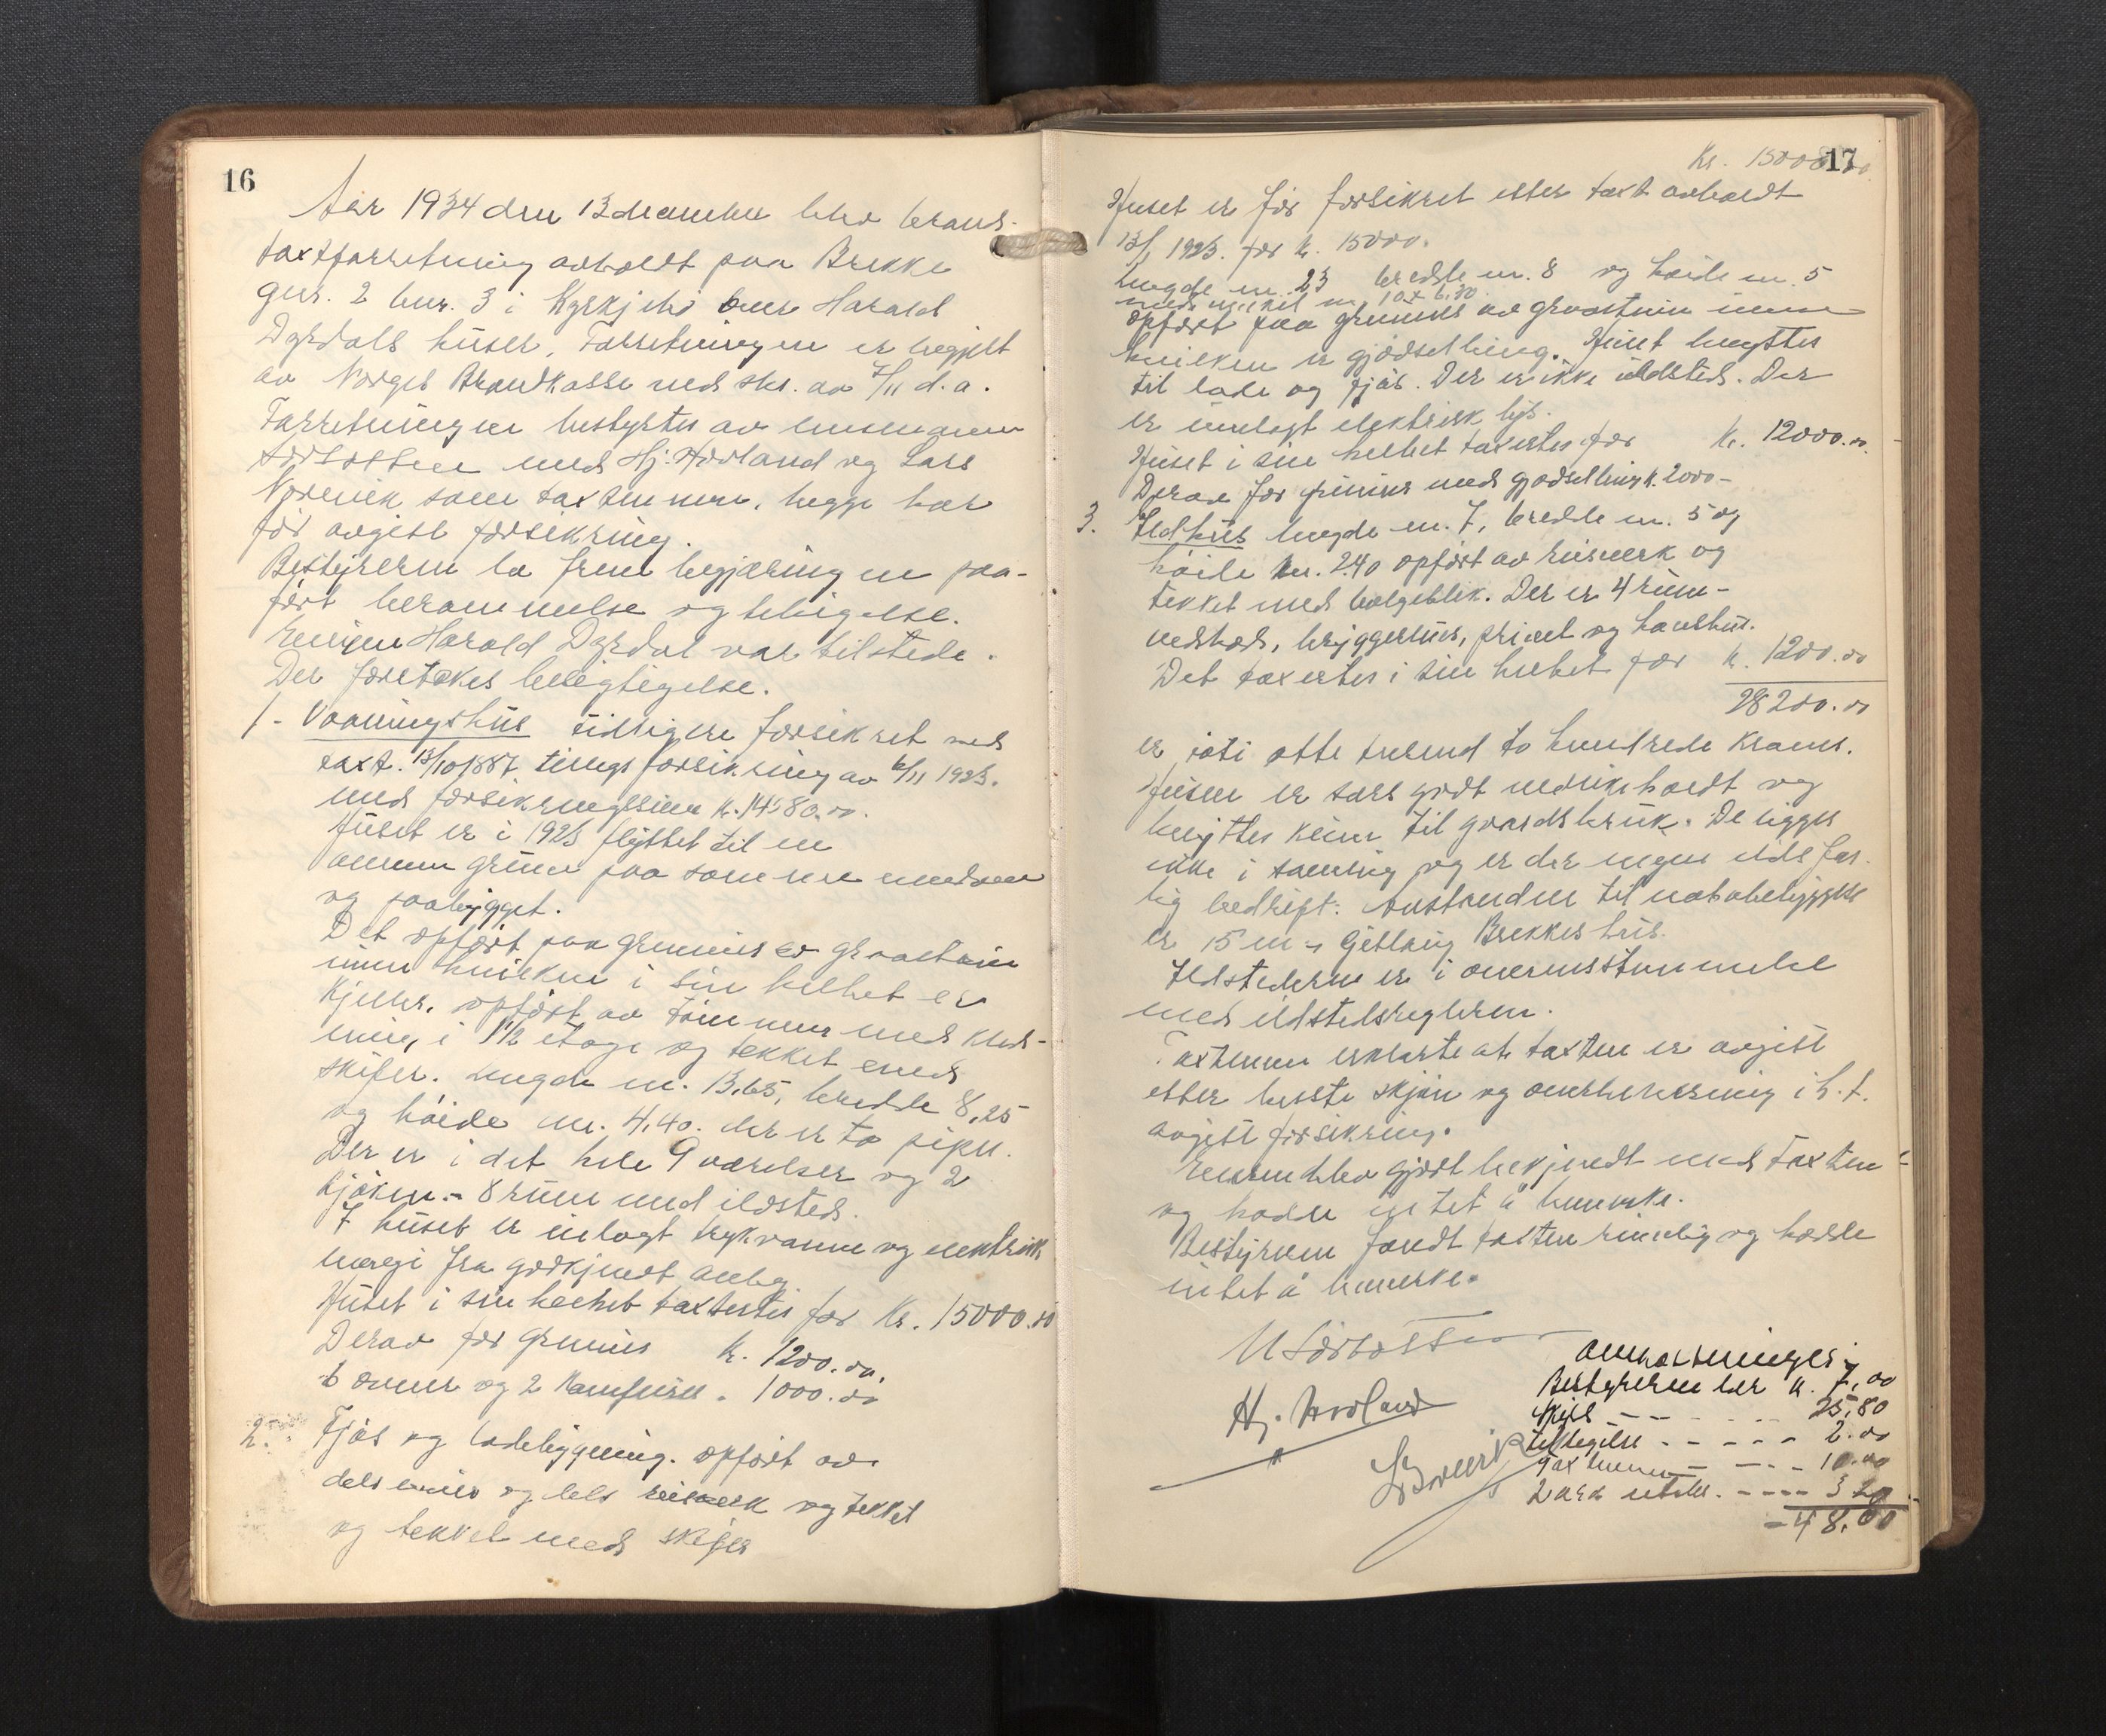 16
Aar 1934 den 13 december blev brand-
taxtforretning avholdt paa Brekke
gnr. 2 bnr. 3 i Kyrkjebø over Harald
Dyrdals huser. Forretningen er begjært
av Norges Brandkasse med skr. av 7/11 d.a.
Forretningen bestyrtes av lensmann
Sørbotten med Hj. Hovland og Lars
som taxtmenn, begge har
før avgitt forsikring.
Bestyreren la frem begjæringen paa-
ført berammelse og
Eieren Harald Dyrdal var tilstede.
Der foretokes besigtigelse.
1. Vaaningshus tidligere forsikret ved
taxt. 13/10 1887. forsikring av 6/11 1923.
med forsikringssum kr. 14580.00.
Huset er i 1923 flyttet til en
annen grunn paa samme
og paabygget.
Det opført paa grunmur av graastein
innen hvilken i sin helhet er
kjeller. opført av tømmer med kled-
ning, i 1 1/2 etage og tekket med
skifer. Lengde m. 13,65, bredde 8,25
og høide m. 4,40. der er to piper.
Der er i det hele 9 værelser og 2
kjøken. - 8 rum med ildsted.
I huset er inlagt trykvann og elektrisk
energi fra godkjendt anleg
Huset i sin helhet taxtertes for Kr. 15000.00
Derav for grunmur kr. 1200.00.
6 ovner og 2 komfurer - 1000.00
2. Fjøs og ladebygning. opført av
dels mur og dels reisverk og tekket
og tekket med skifer
17
Kr. 15000.00
Huset er før forsikret efter taxt avholdt
13/1 1923. for kr. 15000.
Lengde m. 23 bredde m. 8 og høide m. 5
m. 10 x 6,30
opført paa grunmur av graastein innen
hvilken er gjødselbing. Huset benyttes
til lade og fjøs. Der er ikke ildsted. Der
er innlagt elektrisk lys.
Huset i sin helhet taxertes for kr. 12000.00
Derav for grunmur med gjødselbing k. 2000-
3. Ildhus lengde m. 7, bredde m. 5 og
høide m. 2.40 opført av reisverk og
tekket med bølgeblik. Der er 4 rum -
vedskods, bryggerhus, privet og hønshus.
Det taxertes i sin helhet for k. 1200.00
28200.00
er joti otte tusend to hundrede kroner.
Husene er sars godt vedlikeholdt og
benyttes kun til gaardsbruk. De ligger
ikke i samling og er der ingen ildsfar-
lig bedrift. Avstanden til nabobebyggelse
er 15 m - Brekkes hus.
Ildstederne er i overensstemmelse
med ildstedsreglerne.
Taxtmenn erklærte at taxten er avgitt
efter beste skjøn og overbevisning i h.t.
avgitt forsikring.
Eieren blev gjort bekjendt med taxten
og hadde intet å bemerke.
Bestyreren fandt taxten rimelig og hadde
intet å bemerke.
Sørbotten
Hj. Hovland
Omkostninger:
Bestyreren her k. 7,00
Skyss - - - - 25,80
- - - - - 2.00
Taxtmenn - - - - 10.00
2 utskr. - - - - 3 20
- 48.00